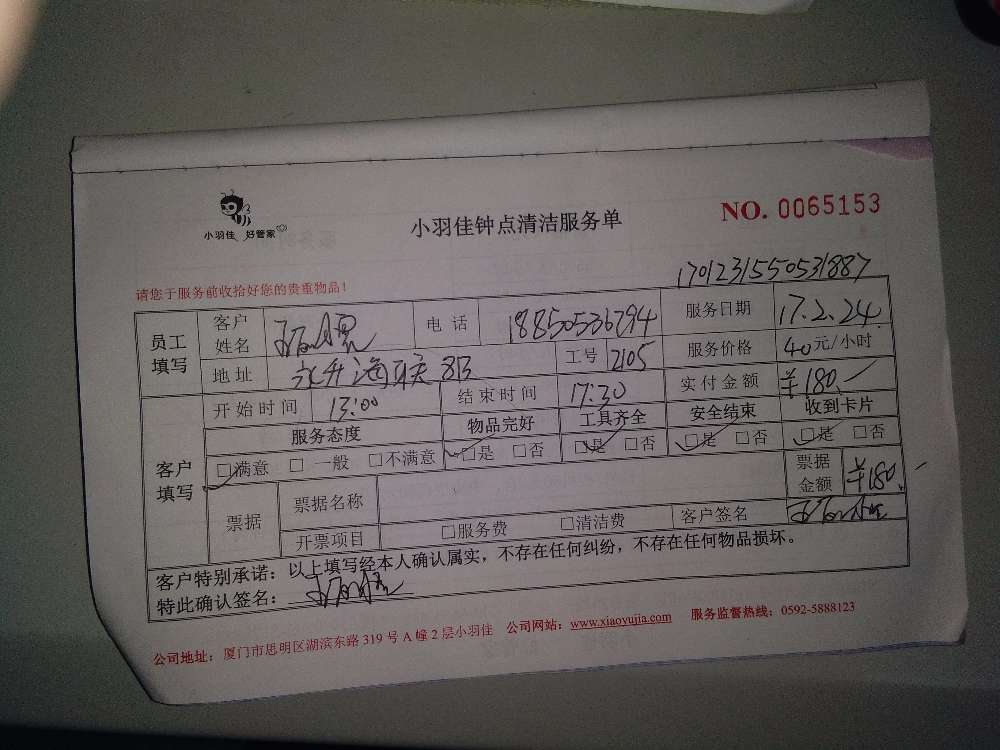 小羽佳 好管家
小羽佳钟点清洁服务单
NO. 0065153
1701231550531887
请您于服务前收拾好您的贵重物品！
员工填写 客户姓名 电话 18850536294 服务日期 17.2.24
地址 工号 2105 服务价格 40元/小时
客户填写 开始时间 13:00 结束时间 17:30 实付金额 ¥180.
服务态度 物品完好 工具齐全 安全结束 收到卡片
□满意 □一般 □不满意 □是 □否 □是 □否 □是 □否 □是 □否
票据 票据名称 票据金额 ¥180.
开票项目 □服务费 □清洁费 客户签名
客户特别承诺：以上填写经本人确认属实，不存在任何纠纷，不存在任何物品损坏。
特此确认签名：
公司地址：厦门市思明区湖滨东路319号A幢2层小羽佳 公司网站：www.xiaoyujia.com 服务监督热线：0592-5888123